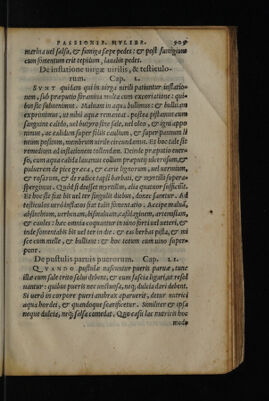 PASSIONIB. MVLIER. 909
marina uel salsa, & fumiga sæpe pedes: & post fumigium
cum fomentum erit tepidum, lauabis pedes.
De inflatione uirgæ uirilis, & testiculo-
rum. Cap. L.
SVNT quidam qui in uirga uirili patiuntur inflatio-
nem, sub præputio
bus sic subuenimus. Maluam in aqua bullimus: & bullitam
exprimimus, ut nihil aquæ remaneat, postea conficimus cum
sanguine calido, uel butyro sine sale, uel oleo, & aquam poni-
mus, ac calidum super folia caulium, & super pannum li
neum possum, inuoluimus: & hoc bis in die fiat. Et hoc sit
remedium ad inflationem tollendam. De inde præputio euer-
so, cum aqua calida lauamus collum præputij ulcerosum, &
puluerem de pice græca, & carie lignorum, uel uermium,
& rosarum, & de radice tapsi barbati, & myrtilli super-
spergimus. Quòd si deesset myrtillum, alia quatuor sufficiunt.
Et hoc fiat bis aut ter in die singulis diebus, donec sanetur. Ad
testiculos uerò inflatos fiat tale fomentum. Accipe maluas,
absinthium, uerbenam, bismaluam, cassilaginem, artemisiam,
& caules: hæc omnia coquantur in uino uel aqua, & unde
fomentabis bis uel ter in die: & eas herbas pista, & mi
sce cum melle, & bulliant: & hoc totum cum uino super-
pone.
De pustulis paruis puerorum. Cap. LI.
QVANDO pustulæ nascuntur pueris paruæ, tunc
ille cum sale trito solui debent, & cum fascia ligari, ut resol
uantur: quibus pueris nec inctuosa, neq; dulcia dari debent.
Si uerò in corpore pueri ambæ aparuerit, detur nutrici
aqua hordei, & quandoque scarificetur. Similiter & ipsa
neque dulcia, neq; salsa comedat. Quo casu lac nutricis hoc
modo